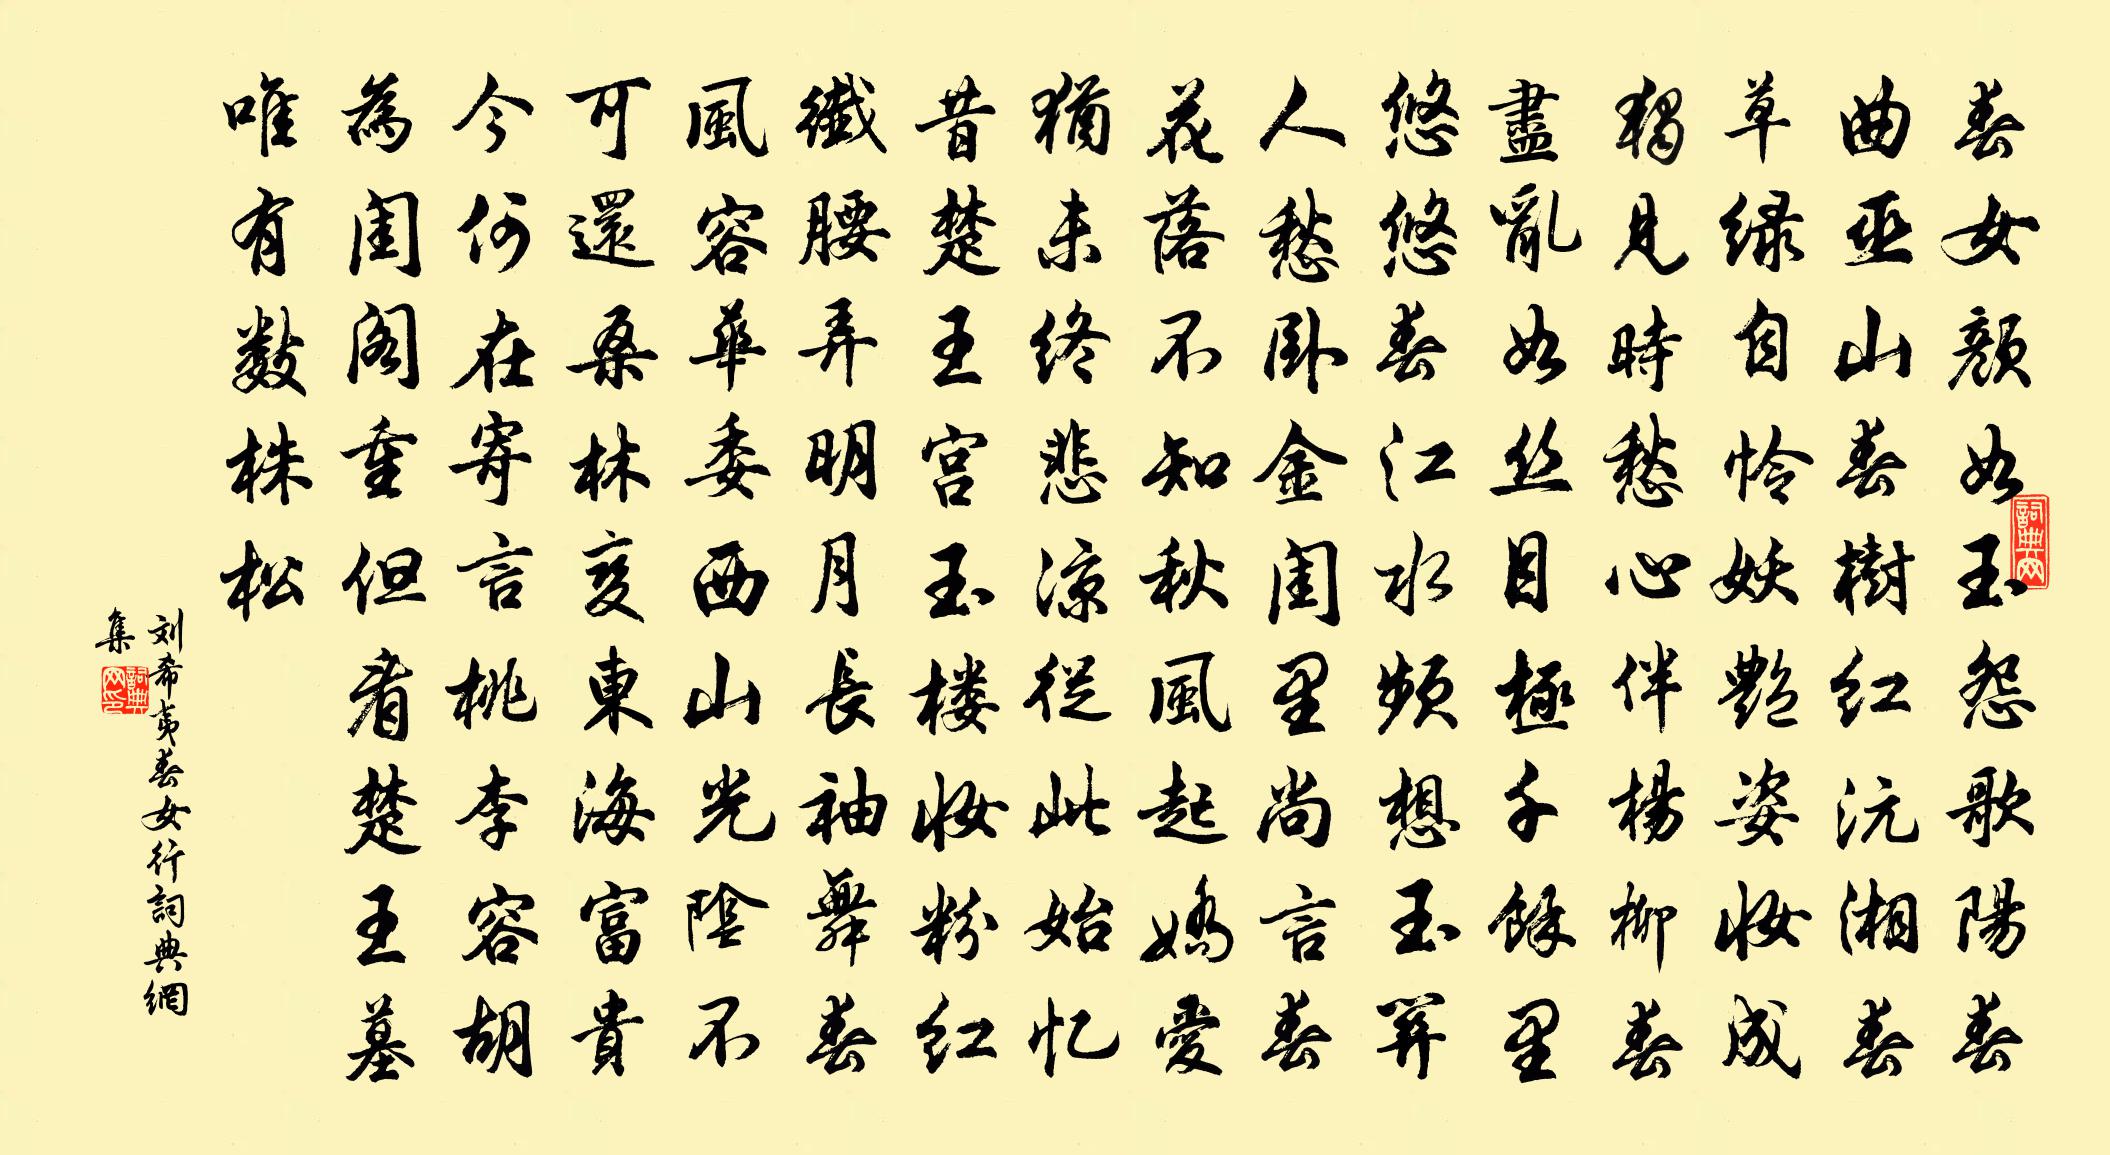 春女颜如玉怨歌陽春
曲巫山春樹红沅湘春
草绿自怜妖艷姿妆成
獨見時愁心伴楊柳春
盡亂如丝目極千餘里
悠悠春江水頻想玉關
人愁卧金閨里尚言春
花落不知秋風起嬌愛
猶未终悲凉從此始忆
昔楚王宫玉楼妆粉红
纖腰弄明月長袖舞春
風容華委西山光陰不
可還桑林变東海富貴
今何在寄言桃李容胡
為閨閣重但看楚王墓
唯有數株松
刘希夷春女行詞典網
集
詞典网
詞典网印